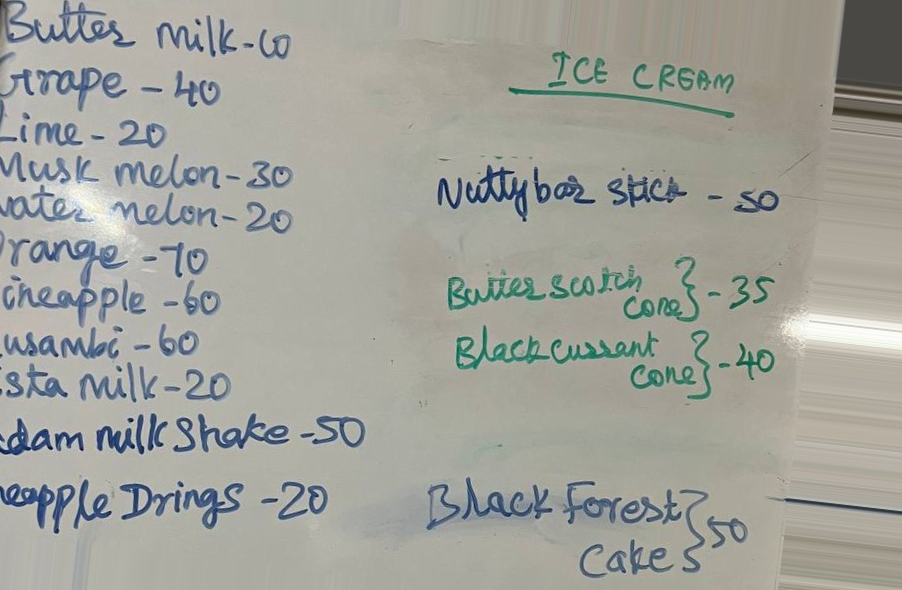 Butter milk-60
Grape - 40
Lime - 20
Musk melon-30
water melon-20
Orange -70
ineapple -60
usambi -60
ista milk-20
adam milk Shake -50
neapple Drings -20
ICE CREAM
Nuttybar stick - 50
Butterscotch
cone} -35
Blackcurrant
cone} -40
Black Forest
Cake} 50